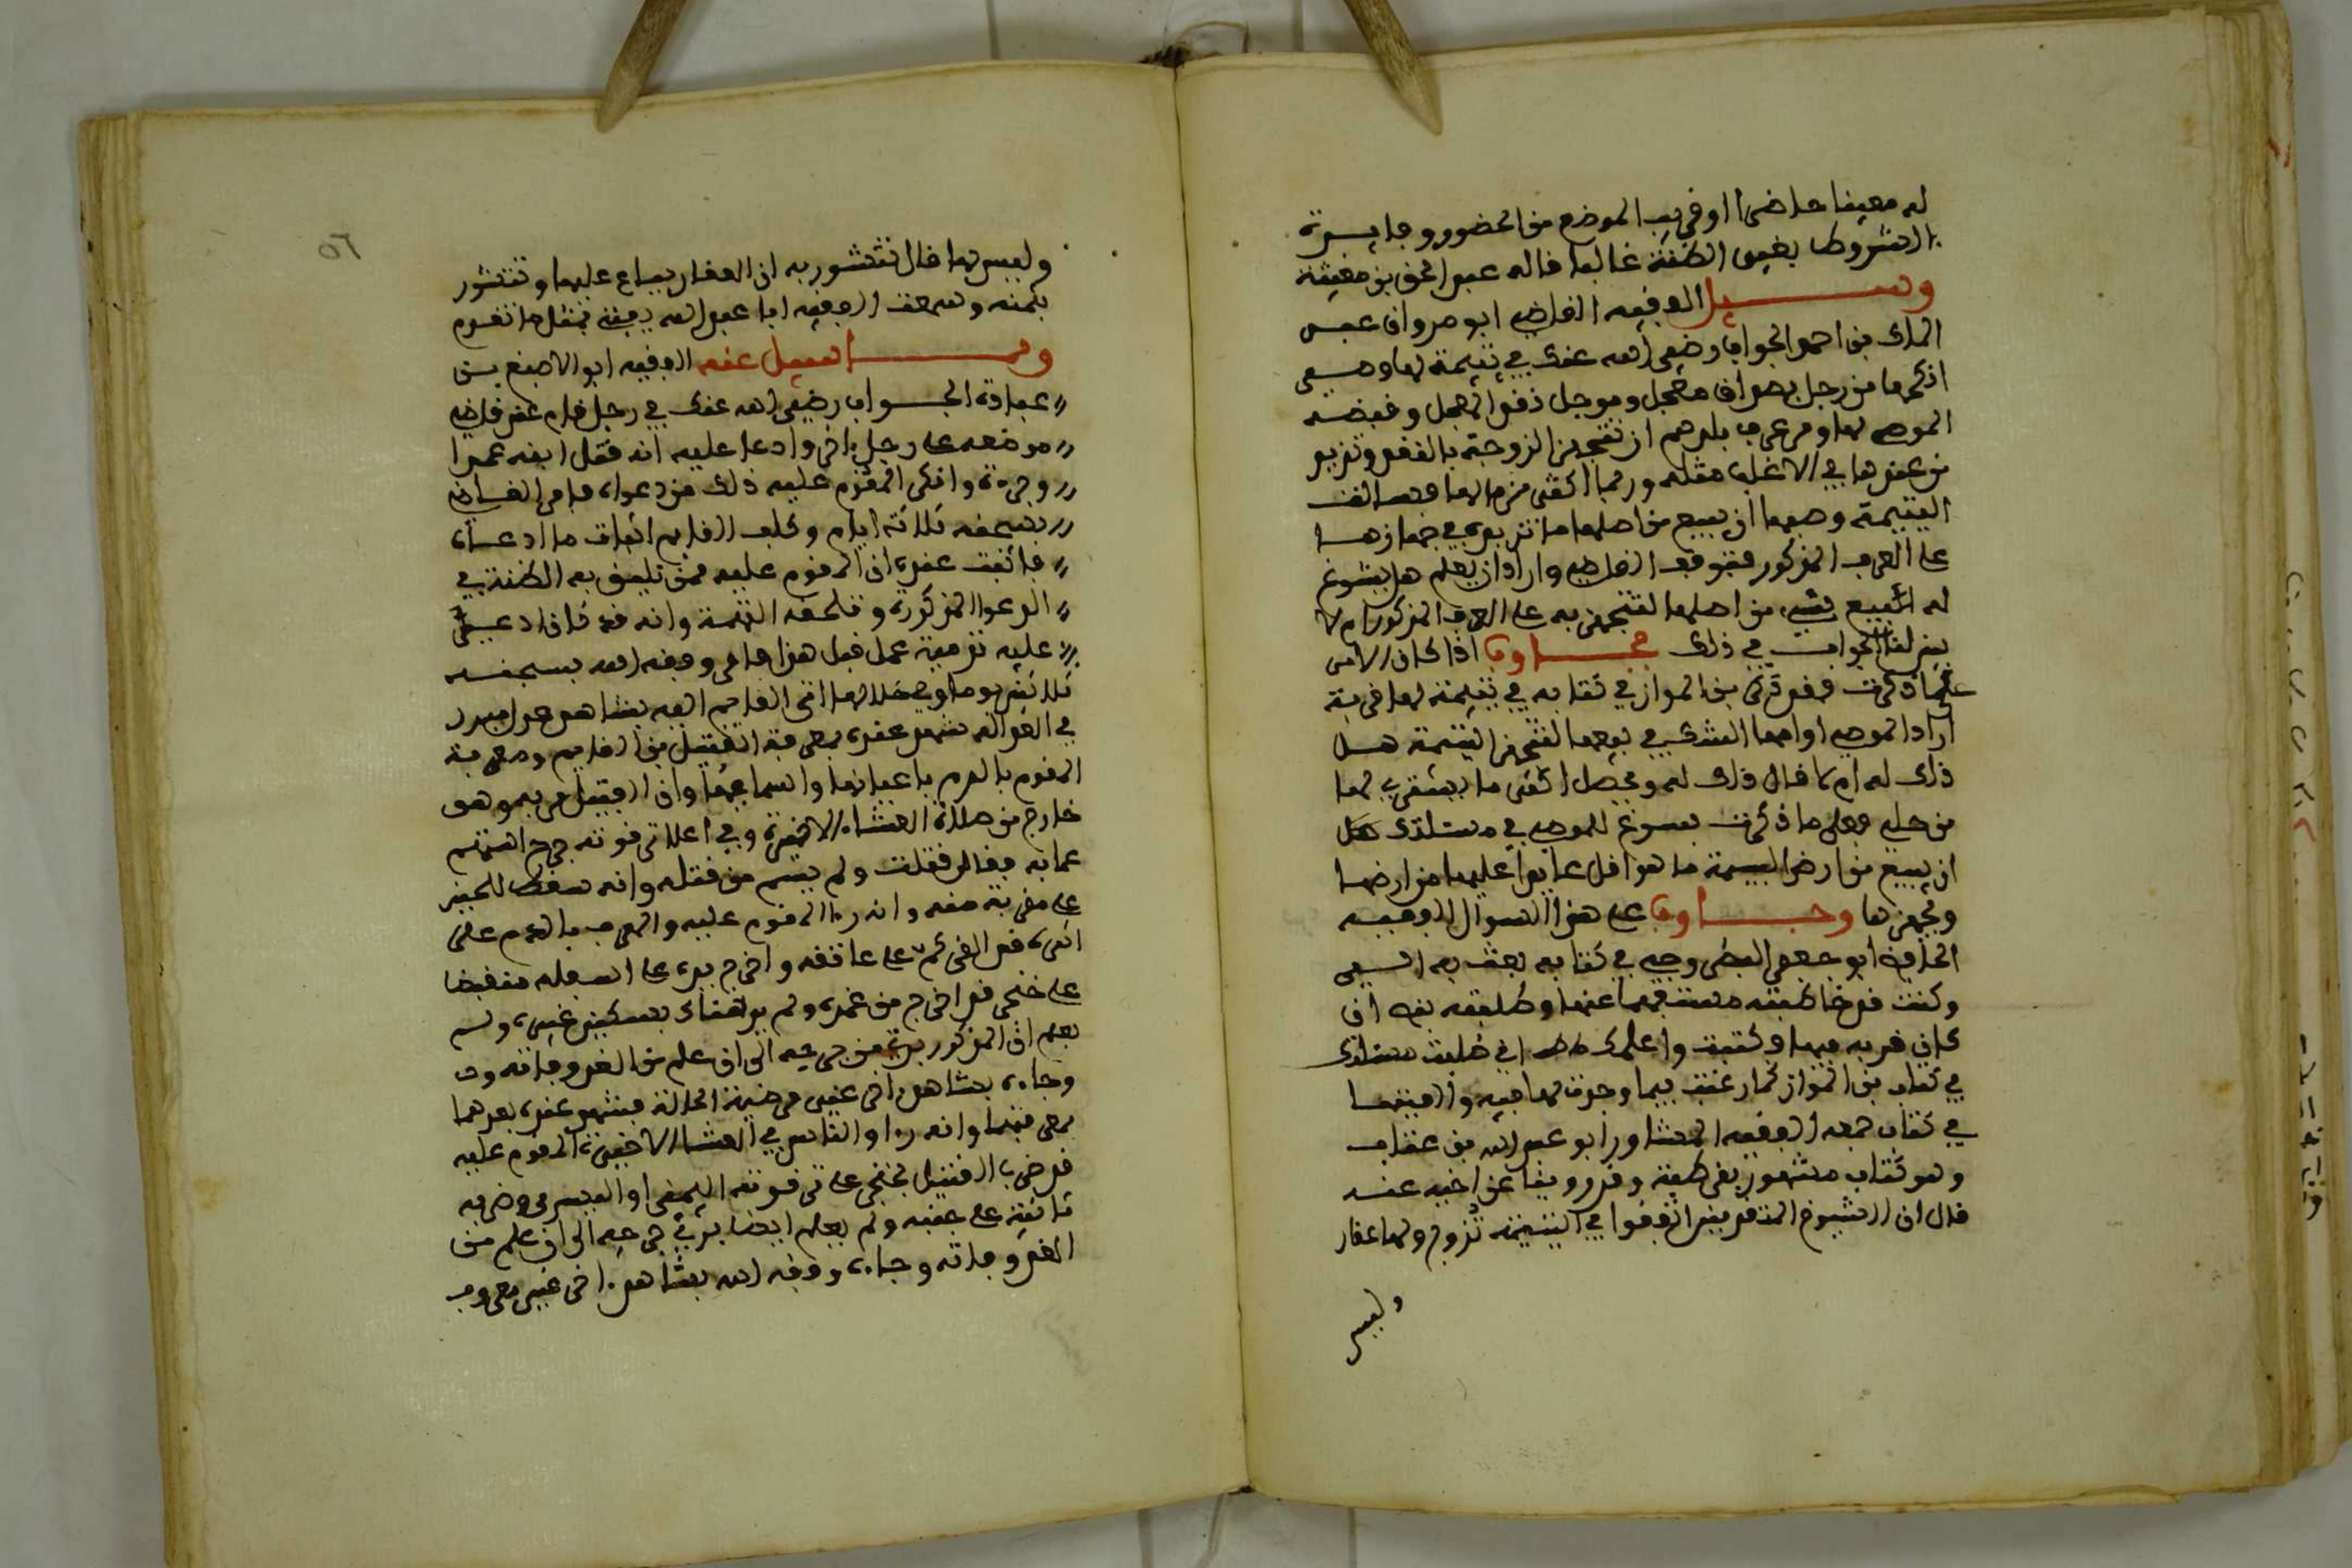 له معينا حاضرا او قريب الموضع من الحضور وما يسرة
الشروط بغير الظنة غالبا قاله عبد الحق بن مغيثة
وسيل الفقيه القاضي ابو مروان عبد
الملك بن احمد الجواب رضي الله عنك في يتيمة لها وصي
انكحها من رجل بصداق معجل وموجل نقد المعجل وقبضه
الموصي لها ومن عرف بلدهم ان تتجهز الزوجة بالنقد وتزيد
من عندها في الاغلب مثله وربما اكثر من مالها فسالت
اليتيمة وصيها ان يبيع من املها ما تزيده في جهازها
على العرف المذكور فتوقف القاضي واراد ان يعلم هل يسوغ
له البيع شيء من املها لتتجهز به على العرف المذكور ام لا
بين لنا الجواب في ذلك فجاوب اذا كان الامر
على ما ذكرت فقد ذكر بن المواز في كتابه في يتيمة لها قرية
اراد الموصي او امها الشرى في بيعها لتجهز اليتيمة هل
ذلك له ام لا قال ذلك له ويحصل اكثر ما يشترى لها
من حلي فعلى ما ذكرت يسوغ للموصي في مسئلتك
ان يبيع من ارض اليتيمة ما هو اقل عايدا عليها من ارضها
ويجهزها وجاوب على هذا السوال الفقيه
الحافظ ابو جعفر البطروجي في كتابه بعث به الي
وكنت قد خاطبته مستفهما عنها وطلبته نص ان
كان قربه فيها وكتبت واعلمك اني طلبت مسئلتك
في كتاب بن المواز كما رغبت فيما وجدت لها فيه والفيتها
في كتاب جمعه الفقيه المشاور ابو عبد الله بن عتاب
وهو كتاب مشهور بقرطبة وقد رويناه عن اخيه عنه
قال ان الشيوخ المتقدمين اتفقوا في اليتيمة تزوج ولها عقار
وليس
٥٦
وليس لها مال تتشور به ان العقار يباع عليها وتتشور
بثمنه وسمعت الفقيه ابا عبد الله يفتي بمثل ما تقدم
ومما سيل عنه الفقيه ابو الاصبغ بن
عبادة الجواب رضي الله عنك في رجل قام عند قاضي
موضعه على رجل اخر وادعا عليه انه قتل ابنه عمدا
وجرحه وانكر المقوم عليه ذلك من دعواه فامر القاضي
بسجنه ثلاثة ايام وكلف القايم اثبات ما ادعاه
فاثبت عنده ان المقوم عليه ممن تليق به الظنة في
الدعوا المذكورة وتلحقه التهمة وانه قد كان ادعي
عليه تدمية عمد قبل هذا فامر وفقه الله بسجنه
ثلاثين يوما وفي خلالها اتى القايم اليه بشاهد
في العدالة شهد عنده بمعرفة القتيل بن القايم ومعرفة
المقوم بالدم باعيانها واسمايها وان القتيل مر به وهو
خارج من صلاة العشاء الاخيرة وفي اعلا ترقوته جرح استفهم
عما به فقال قتلت ولم يسم من قتله وانه سقط للحين
على مقربة منه وانه راا المقوم عليه والمعروف بالدم على
اثره قد القى كمه على عاتقه واخرج يده على اسفله منقبضا
على خنجر قد اخرج من غمده ولم ير هناك بسكين غيره ولم
يعلم ان المذكور بري من جرحه الى ان علم من الغد وفاته
وجاءه بشاهد اخر غير مرضي الحالة فشهد عنده بعدهما
بمعرفتهما وانه راا والناس في العشاء الاخيرة المقوم عليه
قد ضرب القتيل بخنجر على ترقوته اليمنى او اليسرى وضربه
ثانية على جنبه ولم يعلم ايضا بري من جرحه الى ان علم من
الغد وفاته وجاءه وفقه الله بشاهد اخر غير معروف